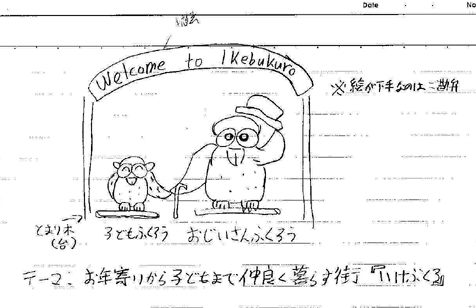 Date No
Welcome to Ikebukuro
※絵が下手なのはご勘弁
とまり木
(台)
子どもふくろう おじいさんふくろう
テーマ: お年寄りから子どもまで仲良く暮らす街『いけぶくろ』